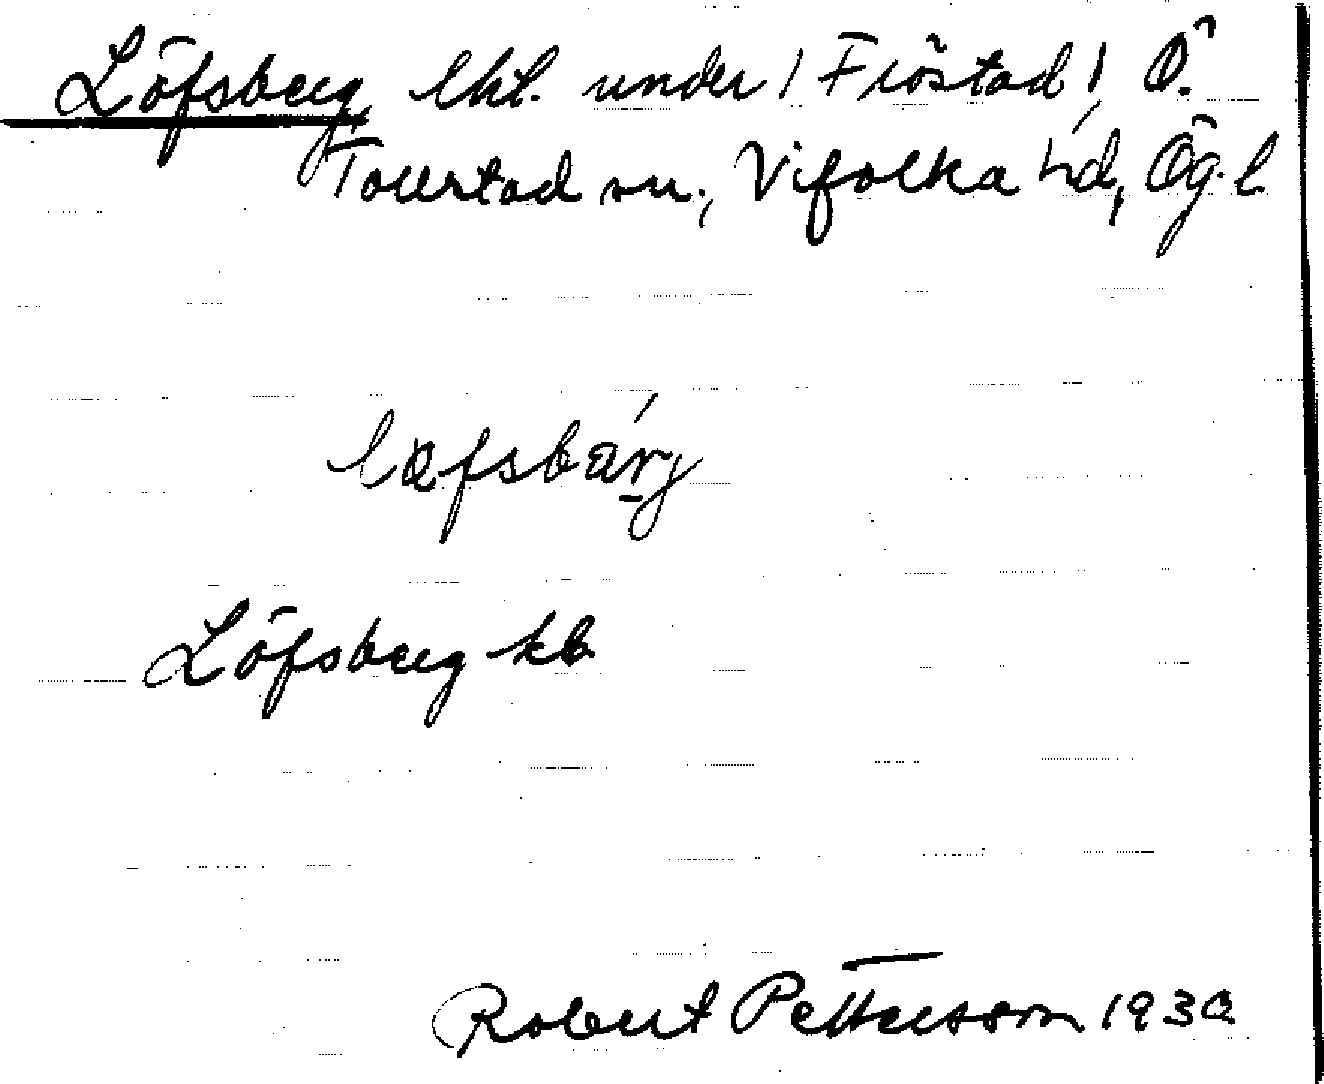 Löfsberg lht. under / Fröstad / Ö.
Tollstad sn., Vifolka hd, Ög. l.
lœfsbárj
Löfsberg kb
Robert Pettersson 1930